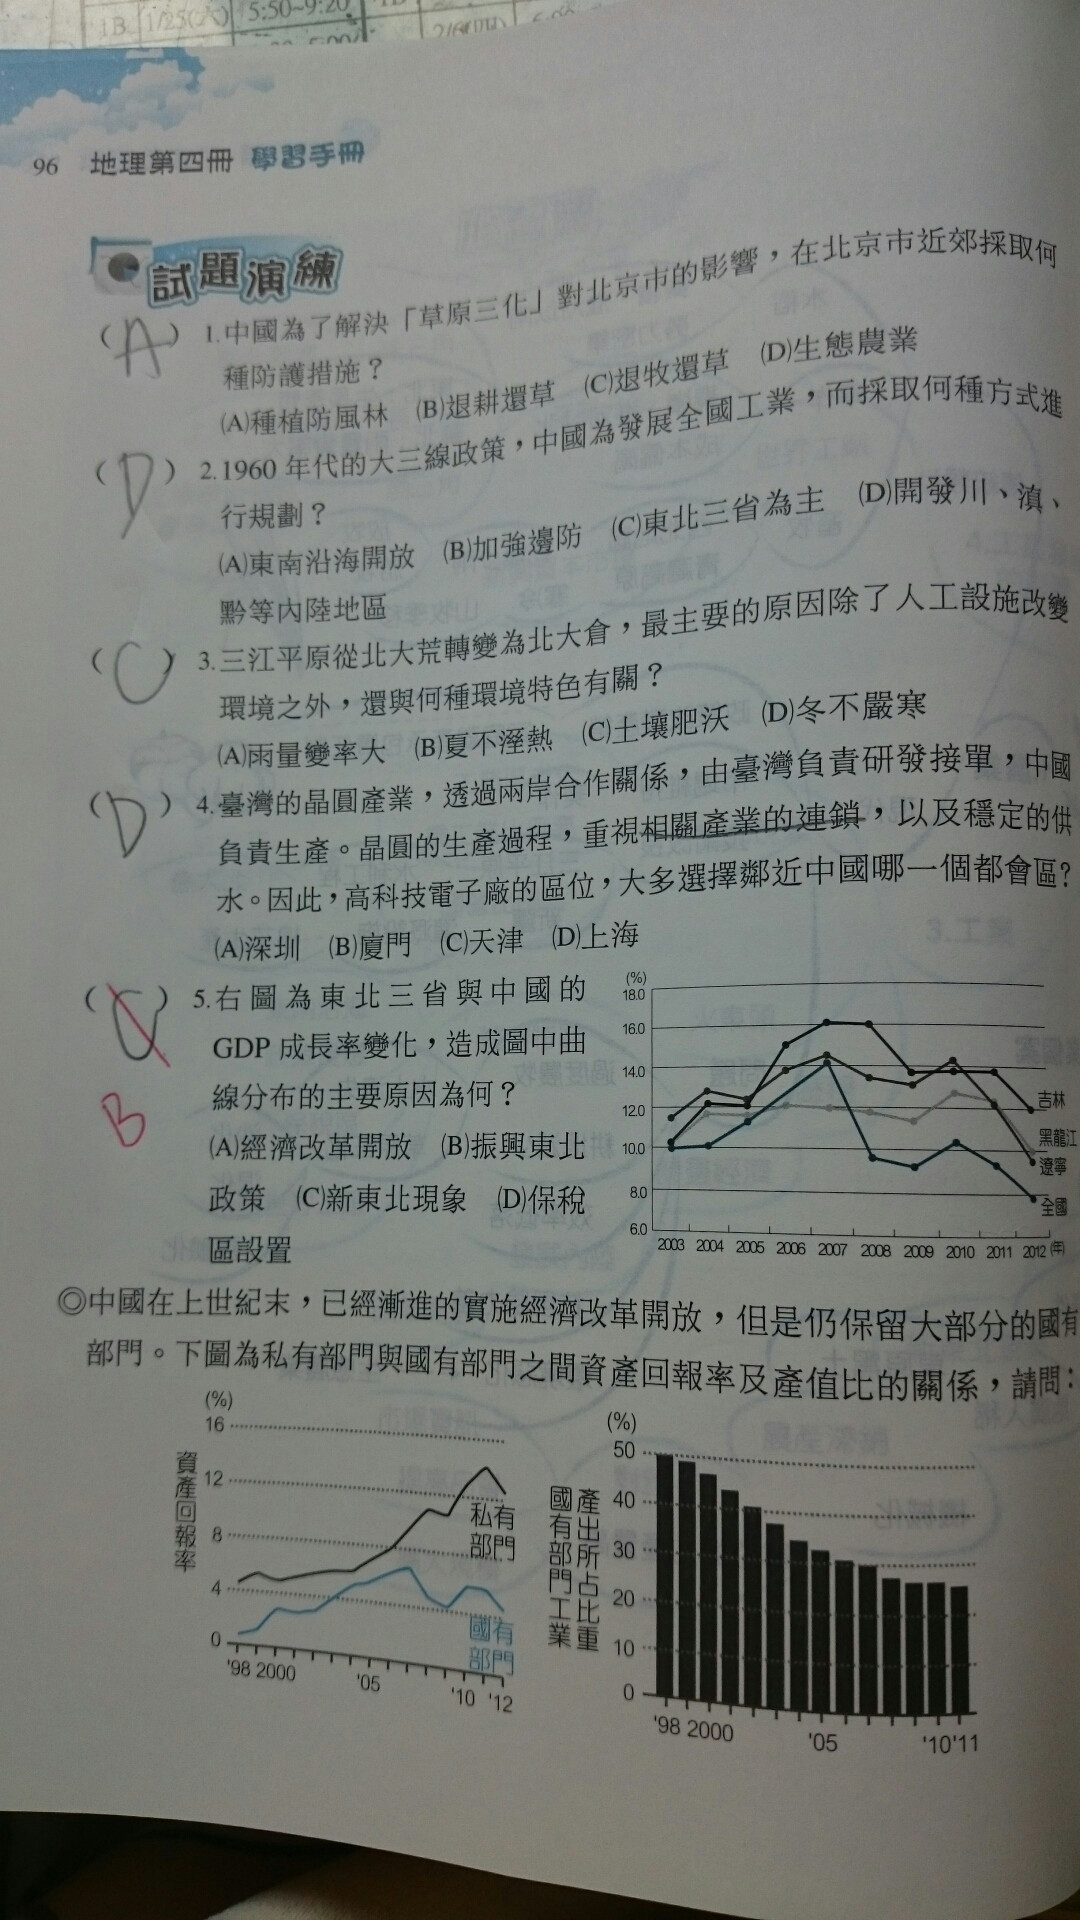 1B 1/25(六) 5:50~9:20
96 地理第四冊 學習手冊
試題演練
(A) 1.中國為了解決「草原三化」對北京市的影響，在北京市近郊採取何
種防護措施？
(A)種植防風林 (B)退耕還草 (C)退牧還草 (D)生態農業
(D) 2.1960 年代的大三線政策，中國為發展全國工業，而採取何種方式進
行規劃？
(A)東南沿海開放 (B)加強邊防 (C)東北三省為主 (D)開發川、滇、
黔等內陸地區
(C) 3.三江平原從北大荒轉變為北大倉，最主要的原因除了人工設施改變
環境之外，還與何種環境特色有關？
(A)雨量變率大 (B)夏不溼熱 (C)土壤肥沃 (D)冬不嚴寒
(D) 4.臺灣的晶圓產業，透過兩岸合作關係，由臺灣負責研發接單，中國
負責生產。晶圓的生產過程，重視相關產業的連鎖，以及穩定的供
水。因此，高科技電子廠的區位，大多選擇鄰近中國哪一個都會區？
(A)深圳 (B)廈門 (C)天津 (D)上海
(C) 5.右圖為東北三省與中國的
B
GDP 成長率變化，造成圖中曲
線分布的主要原因為何？
(A)經濟改革開放 (B)振興東北
政策 (C)新東北現象 (D)保稅
區設置
(%)
18.0
16.0
14.0
12.0
10.0
8.0
6.0
吉林
黑龍江
遼寧
全國
2003 2004 2005 2006 2007 2008 2009 2010 2011 2012 (年)
◎中國在上世紀末，已經漸進的實施經濟改革開放，但是仍保留大部分的國有
部門。下圖為私有部門與國有部門之間資產回報率及產值比的關係，請問：
(%)
16
12
8
4
0
資產回報率
私有
部門
國有
部門
'98 2000 '05 '10 '12
(%)
50
40
30
20
10
0
國有部門工業
產出所占比重
'98 2000 '05 '10 '11